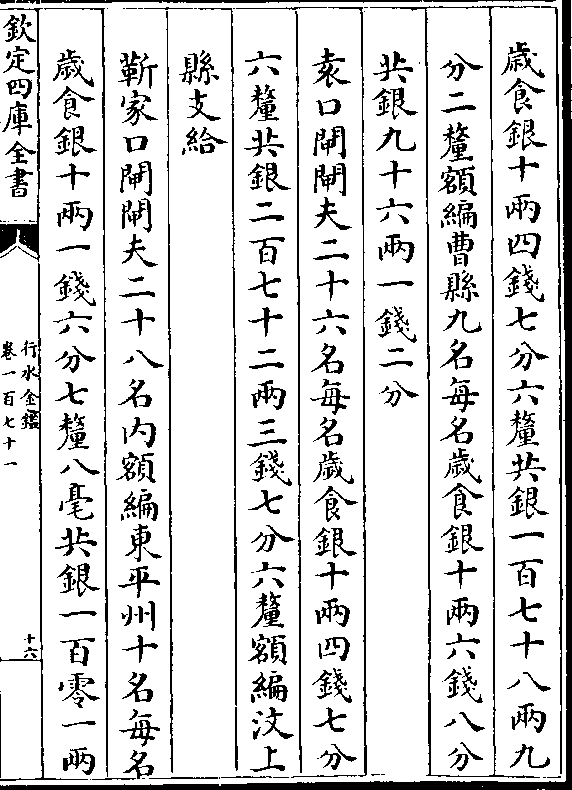 歲食銀十兩四錢七分六釐共銀一百七十八兩九
分二釐額編曹縣九名每名歲食銀十兩六錢八分
共銀九十六兩一錢二分
袁口閘閘夫二十六名每名歲食銀十兩四錢七分
六釐共銀二百七十二兩三錢七分六釐額編汶上
縣支給
靳家口閘閘夫二十八名内額編東平州十名每名
歲食銀十兩一錢六分七釐八毫共銀一百零一兩
欽定四庫全書
行水金鑑
卷一百七十一
十六